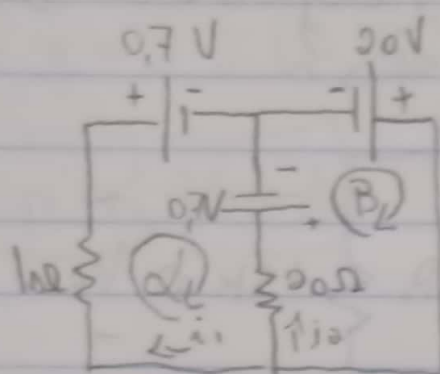 0,7 V 20V
+ - - +
-
0,7V B
+
α 20Ω
i₁ i₂